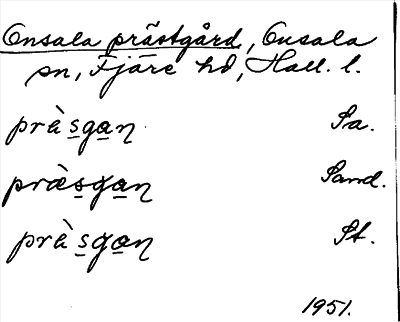 Onsala prästgård, Onsala
sn, Fjäre hd, Hall. l.
prà̀sgaŋ Sa.
præ̀sgaŋ Sand.
prà̀sgaŋ St.
1951.